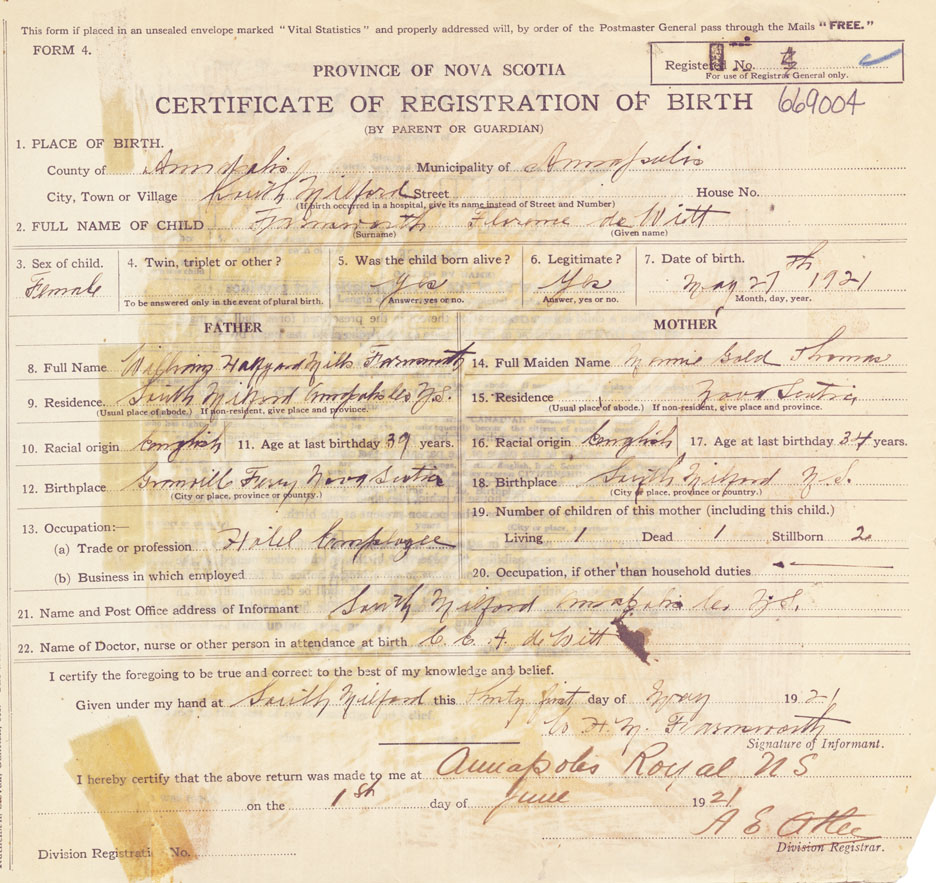 This form if placed in an unsealed envelope marked "Vital Statistics" and properly addressed will, by order of the Postmaster General pass through the Mails "FREE."
FORM 4.
Registered No.
For use of Registrar General only.
PROVINCE OF NOVA SCOTIA
CERTIFICATE OF REGISTRATION OF BIRTH 669004
(BY PARENT OR GUARDIAN)
1. PLACE OF BIRTH.
County of Annapolis Municipality of Annapolis
City, Town or Village South Milford Street House No.
(If birth occurred in a hospital, give its name instead of Street and Number)
2. FULL NAME OF CHILD Farnsworth Florence de Witt
(Surname) (Given name)
3. Sex of child. 4. Twin, triplet or other? 5. Was the child born alive? 6. Legitimate? 7. Date of birth.
Female Yes Yes May 27th 1921
To be answered only in the event of plural birth. Answer, yes or no. Answer, yes or no. Month, day, year.
FATHER MOTHER
8. Full Name Mills Farnsworth 14. Full Maiden Name Gold Thomas
9. Residence South Milford Annapolis Co N.S. 15. Residence Nova Scotia
(Usual place of abode.) If non-resident, give place and province. (Usual place of abode.) If non-resident, give place and province.
10. Racial origin English 11. Age at last birthday 39 years. 16. Racial origin English 17. Age at last birthday 34 years.
12. Birthplace Granvill Ferry Nova Scotia 18. Birthplace South Milford N.S.
(City or place, province or country.) (City or place, province or country.)
13. Occupation:— 19. Number of children of this mother (including this child.)
(a) Trade or profession Hotel Employee Living 1 Dead 1 Stillborn 2
(b) Business in which employed 20. Occupation, if other than household duties
21. Name and Post Office address of Informant South Milford Annapolis Co N.S.
22. Name of Doctor, nurse or other person in attendance at birth de Witt
I certify the foregoing to be true and correct to the best of my knowledge and belief.
Given under my hand at South Milford this Thirty first day of May 1921
W. H. M. Farnsworth
Signature of Informant.
I hereby certify that the above return was made to me at Annapolis Royal NS
on the 1st day of June 1921
A E Atlee
Division Registrar.
Division Registration No.